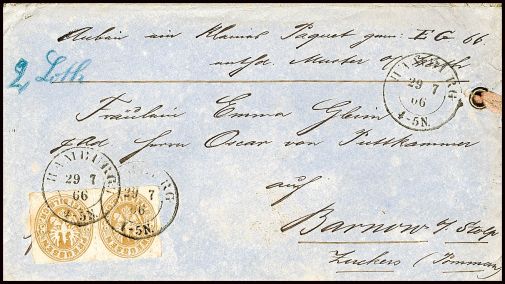 Anbei ein kleines Paquet gem: E G 66.
enth. Muster o/ Werth
2 Loth
HAMBURG
29 7
66
4-5N.
Fräulein Emma Gleim
p. Ad Herrn Oscar von Puttkammer
auf
Barnow b/ Stolp
Zuckers (Pommern)
HAMBURG
29 7
66
4-5N.
HAMBURG
29 7
66
4-5N.